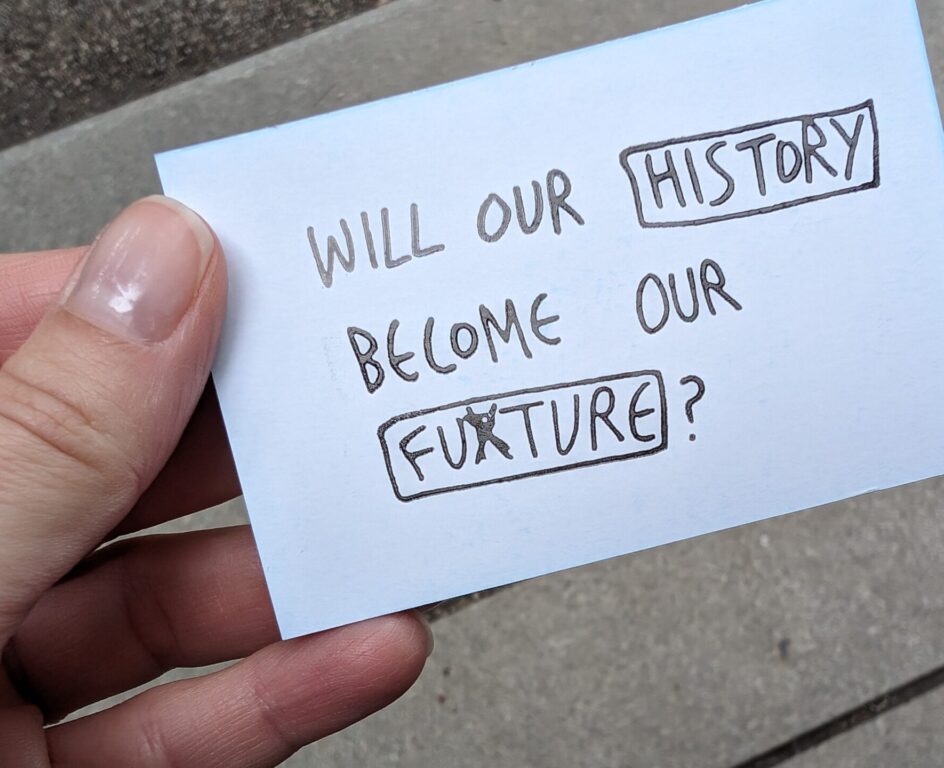 WILL OUR HISTORY
BECOME OUR
FUTURE?